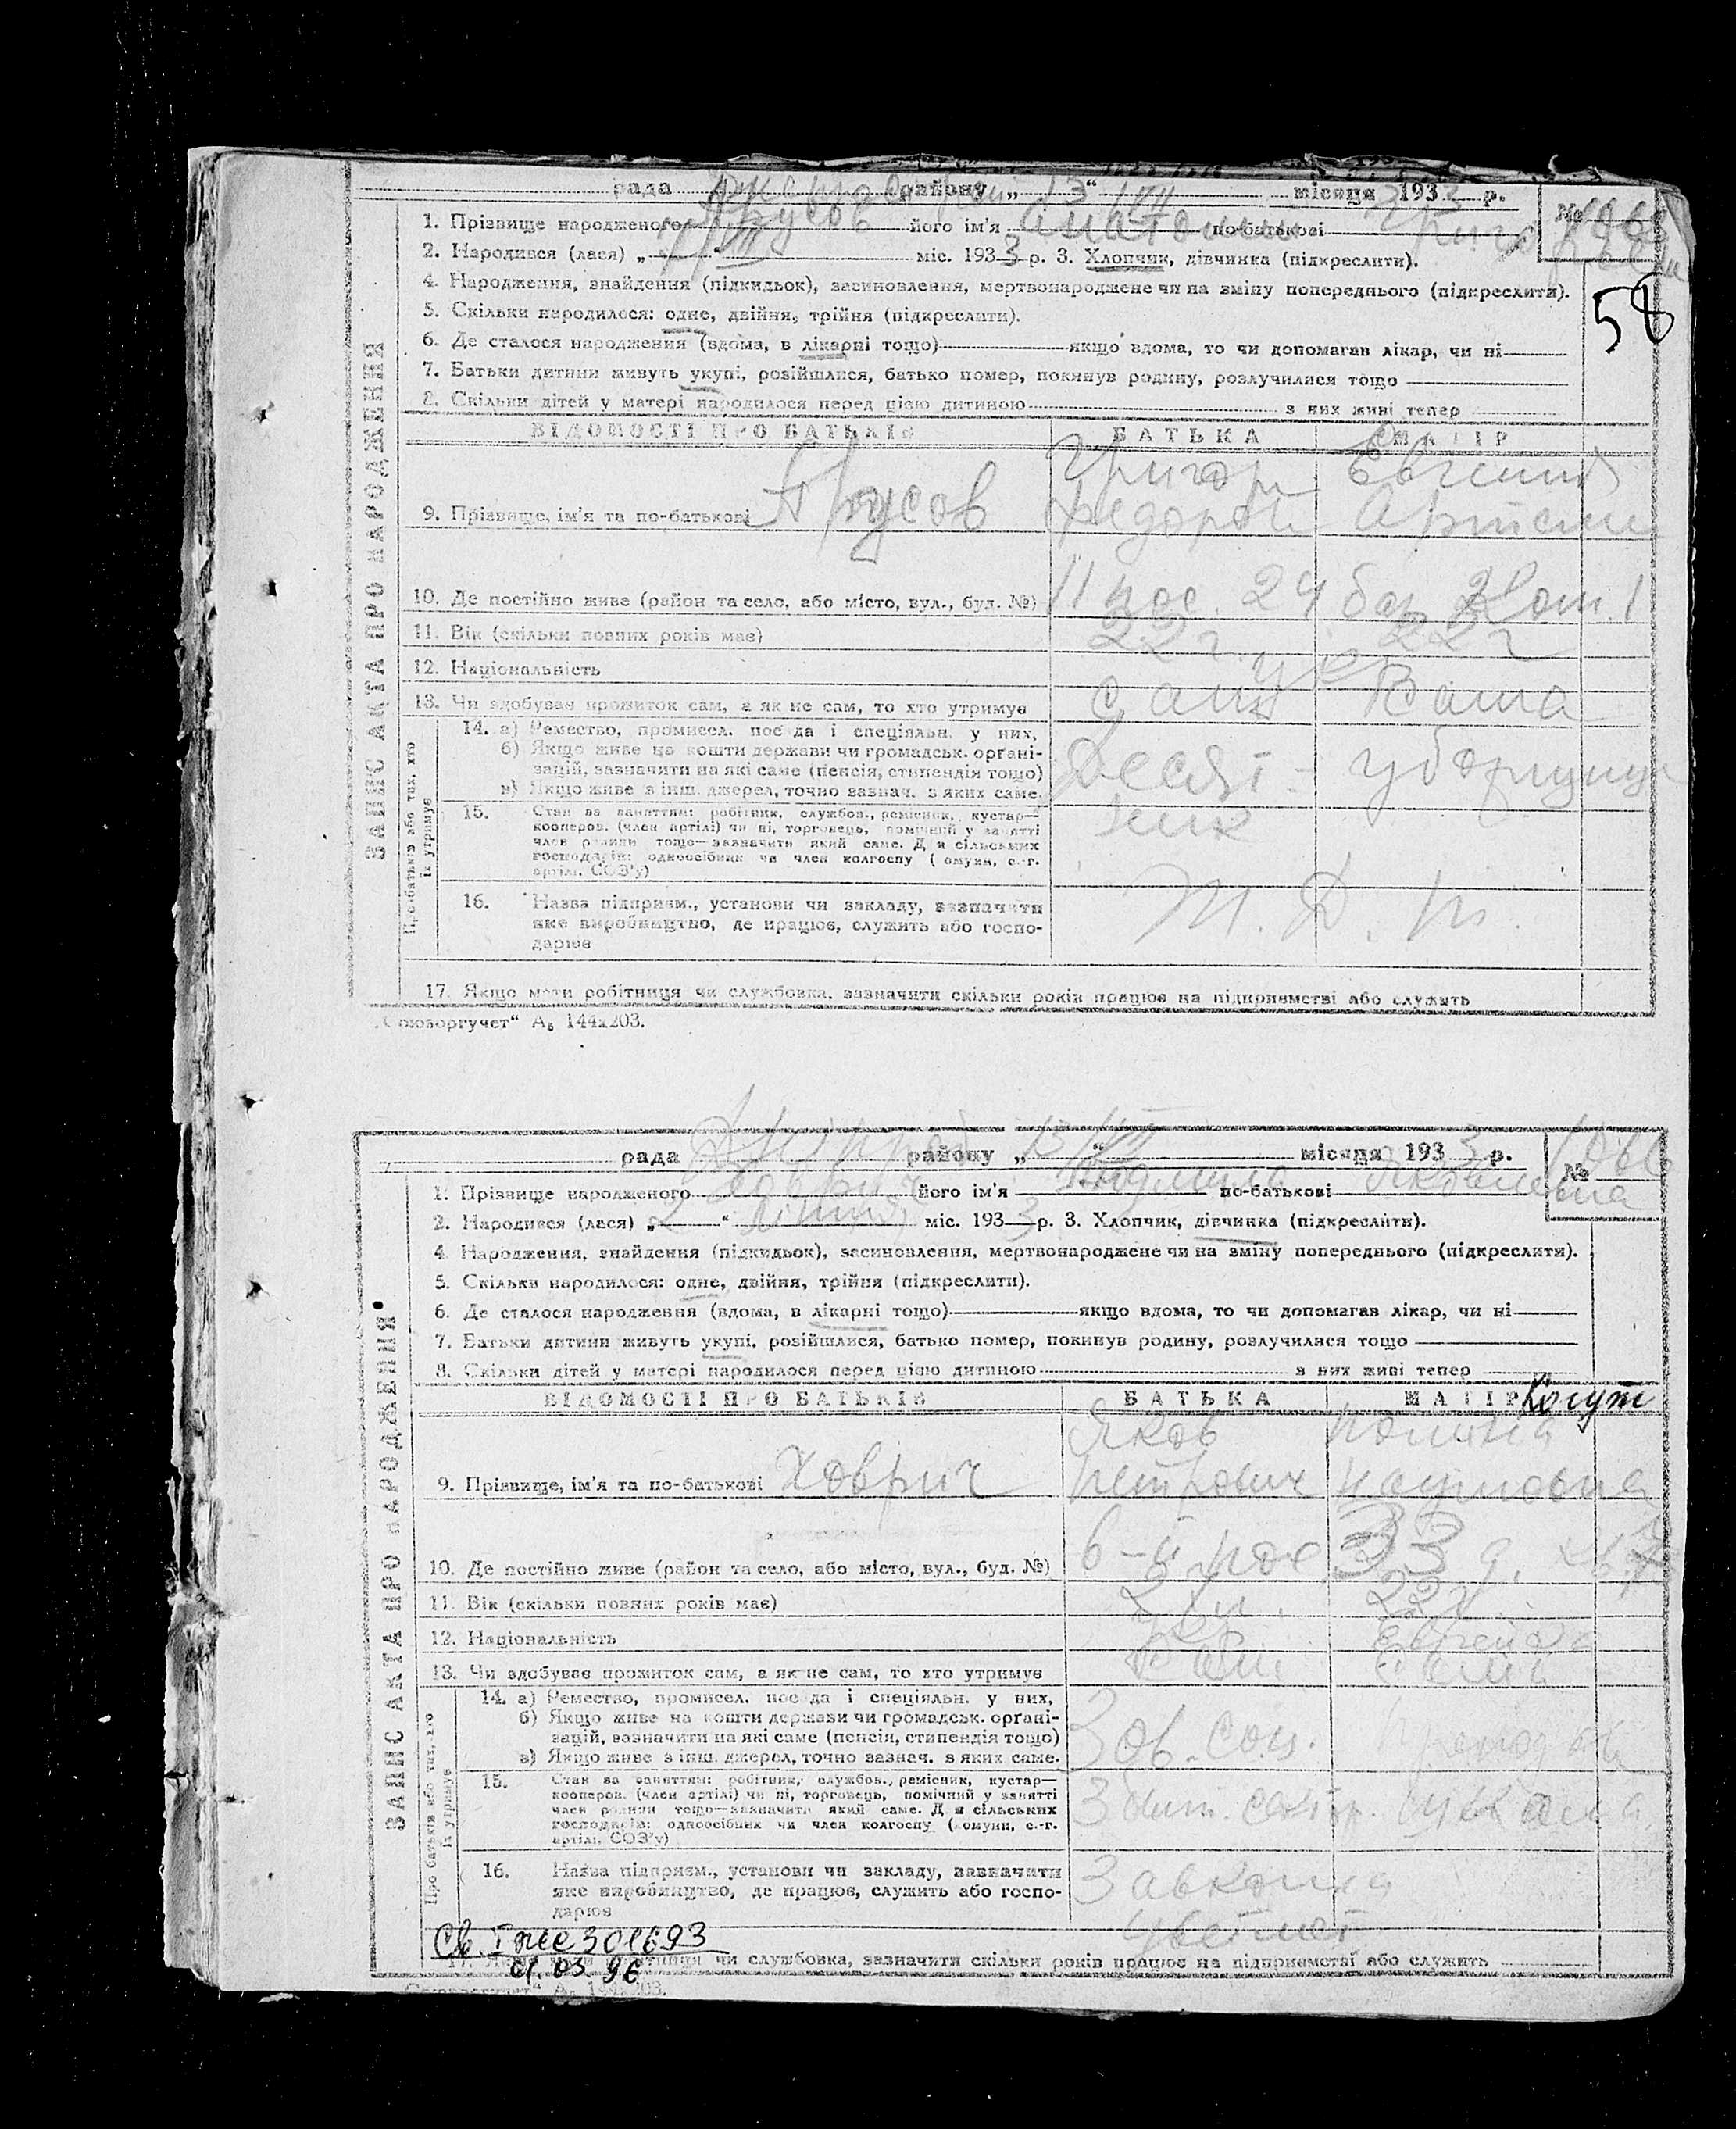 рада району „13“ VII місяця 1933 р.
№
1. Прізвище народженого Трусов його ім'я Анатолий по-батькові
2. Народився (лася) „ “ VII міс. 1933 р. 3. Хлопчик, дівчинка (підкреслити).
58
4. Народження, знайдення (підкидьок), засиновлення, мертвонароджене чи на зміну попереднього (підкреслити).
5. Скільки народилося: одне, двійня, трійня (підкреслити).
6. Де сталося народження (вдома, в лікарні тощо) якщо вдома, то чи допомагав лікар, чи ні
7. Батьки дитини живуть укупі, розійшлися, батько помер, покинув родину, розлучилися тощо
8. Скільки дітей у матері народилося перед цією дитиною з них живі тепер
ЗАПИС АКТА ПРО НАРОДЖЕННЯ
ВІДОМОСТІ ПРО БАТЬКІВ БАТЬКА МАТІР
Григор Евгения
9. Прізвище, ім'я та по-батькові Трусов Федоров Артемы
10. Де постійно живе (район та село, або місто, вул., буд. №) 11 пос. 24 бар. 2 ком. 1
11. Вік (скільки повних років має) 22 г. 22 г
12. Національність укр
13. Чи здобуває прожиток сам, а як не сам, то хто утримує сам сама
Про батьків або тих, хто їх утримує
14. а) Ремество, промисел, посада і спеціяльн. у них,
б) Якщо живе на кошти держави чи громадськ. органі-
зацій, зазначити на які саме (пенсія, стипендія тощо) Десят- уборщица
в) Якщо живе з інш. джерел, точно зазнач. з яких саме.
15. Стан за заняттям: робітник, службов., ремісник, кустар— ник
кооперов. (член артілі) чи ні, торговець, помічний у занятті
член родини тощо—зазначити який саме. Для сільських
господарів: одноосібник чи член колгоспу (комуни, с.-г.
артілі, СОЗ'у)
16. Назва підприєм., установи чи закладу, зазначити
яке виробництво, де працює, служить або госпо-
дарює
17. Якщо мати робітниця чи службовка, зазначити скільки років працює на підприємстві або служить
„Союзоргучет“ А₅ 144х203.
рада району „13“ VII місяця 1933 р.
№
1. Прізвище народженого Ховрич його ім'я Людмила по-батькові Яковлевна
2. Народився (лася) „2“ липня міс. 1933 р. 3. Хлопчик, дівчинка (підкреслити).
4. Народження, знайдення (підкидьок), засиновлення, мертвонароджене чи на зміну попереднього (підкреслити).
5. Скільки народилося: одне, двійня, трійня (підкреслити).
6. Де сталося народження (вдома, в лікарні тощо) якщо вдома, то чи допомагав лікар, чи ні
7. Батьки дитини живуть укупі, розійшлися, батько помер, покинув родину, розлучилися тощо
8. Скільки дітей у матері народилося перед цією дитиною з них живі тепер
ЗАПИС АКТА ПРО НАРОДЖЕННЯ
ВІДОМОСТІ ПРО БАТЬКІВ БАТЬКА МАТІР Когут
Яков Полина
9. Прізвище, ім'я та по-батькові Ховрич Петрович Наумовна
10. Де постійно живе (район та село, або місто, вул., буд. №) 6-й пос 33
11. Вік (скільки повних років має) 22
12. Національність укр еврейка
13. Чи здобуває прожиток сам, а як не сам, то хто утримує сам сама
Про батьків або тих, хто їх утримує
14. а) Ремество, промисел, посада і спеціяльн. у них,
б) Якщо живе на кошти держави чи громадськ. органі-
зацій, зазначити на які саме (пенсія, стипендія тощо) Зав. соц.
в) Якщо живе з інш. джерел, точно зазнач. з яких саме.
15. Стан за заняттям: робітник, службов., ремісник, кустар—
кооперов. (член артілі) чи ні, торговець, помічний у занятті школа
член родини тощо—зазначити який саме. Для сільських
господарів: одноосібник чи член колгоспу (комуни, с.-г.
артілі, СОЗ'у)
16. Назва підприєм., установи чи закладу, зазначити
яке виробництво, де працює, служить або госпо-
дарює
17. Якщо мати робітниця чи службовка, зазначити скільки років працює на підприємстві або служить
01.03.96